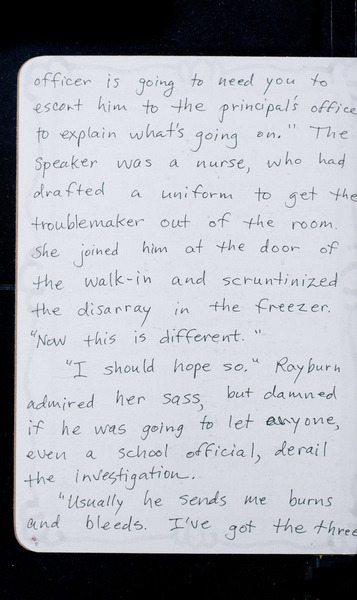 officer is going to need you to
escort him to the principal's office
to explain what's going on." The
speaker was a nurse, who had
drafted a uniform to get the
troublemaker out of the room.
She joined him at the door of
the walk-in and scruntinized
the disarray in the freezer.
"Now this is different."
"I should hope so." Rayburn
admired her sass, but damned
if he was going to let anyone,
even a school official, derail
the investigation.
"Usually he sends me burns
and bleeds. I've got the three